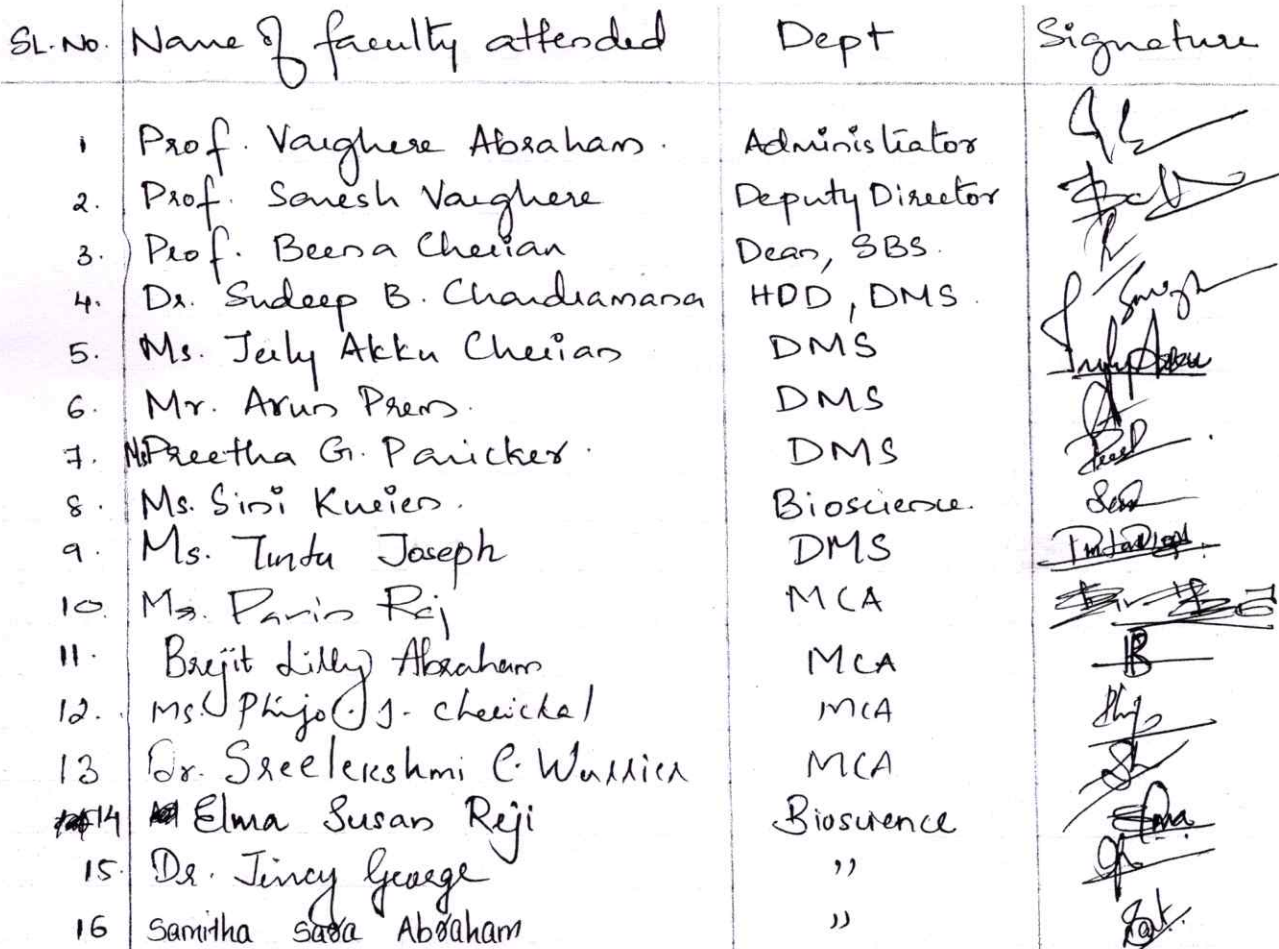 SL. No. Name of faculty attended Dept Signature
1 Prof. Varghese Abraham. Administrator
2. Prof. Sonesh Varghese Deputy Director
3. Prof. Beena Cherian Dean, SBS.
4. Dr. Sudeep B. Chandramana HOD, DMS.
5. Ms. Jeely Akku Cherian DMS
6. Mr. Arun Prem. DMS
7. Ms Preetha G. Panicker. DMS
8. Ms. Sini Kurien. Bioscience.
9. Ms. Tintu Joseph DMS
10. Raj MCA
11. Brejit Lilly Abraham MCA
12. Ms. Phijo J. Cherickal MCA
13 Dr. Sreelekshmi C. Warrier MCA
14 Elma Susan Reji Bioscience
15. Dr. Jincy George "
16 Samitha Sara Abraham "